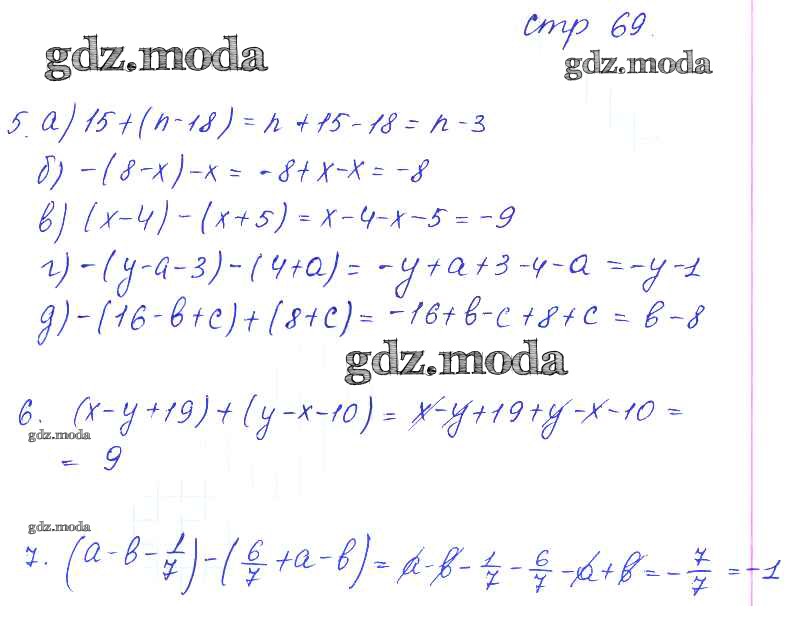 стр 69.
gdz.moda
gdz.moda
5. а) 15+(n-18)=n+15-18=n-3
б) -(8-x)-x=-8+x-x=-8
в) (x-4)-(x+5)=x-4-x-5=-9
г) -(y-a-3)-(4+a)=-y+a+3-4-a=-y-1
д) -(16-в+c)+(8+c)=-16+в-c+8+c=в-8
gdz.moda
6. (x-y+19)+(y-x-10)=x-y+19+y-x-10=
gdz.moda
= 9
gdz.moda
7. (a-в-1/7)-(6/7+a-в)=a-в-1/7-6/7-a+в=-7/7=-1